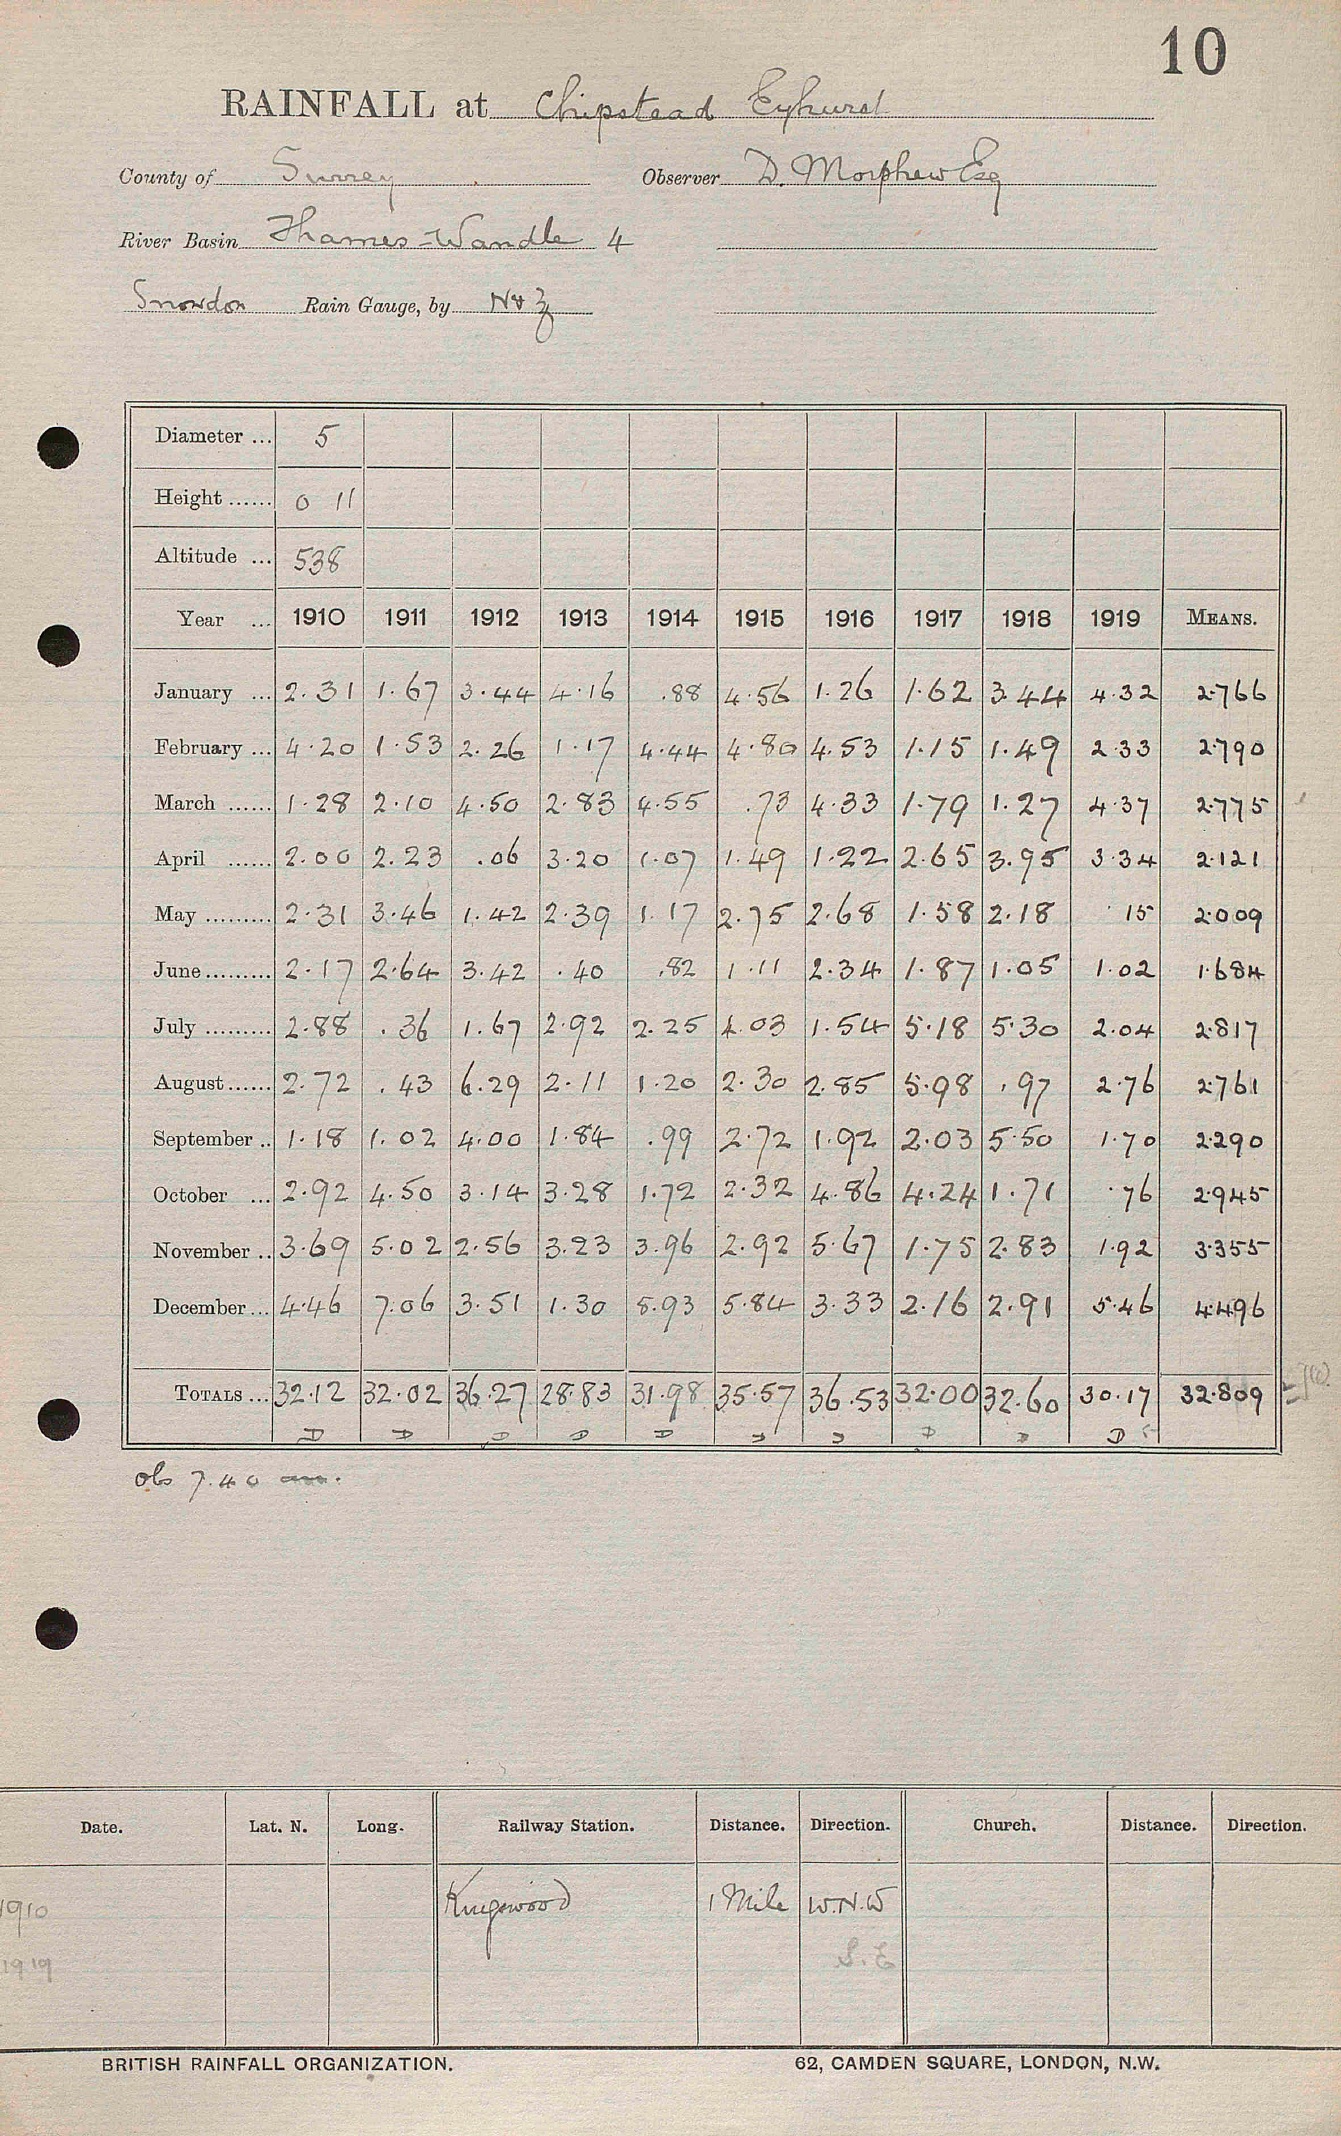 10
RAINFALL at Chipstead Eyhurst
County of Surrey Observer D. Morphew Esq
River Basin Thames-Wandle 4
Snowdon Rain Gauge, by N & Z
Diameter ... 5
Height ...... 0 11
Altitude ... 538
Year ... 1910 1911 1912 1913 1914 1915 1916 1917 1918 1919 MEANS.
January ... 2.31 1.67 3.44 4.16 .88 4.56 1.26 1.62 3.44 4.32 2.766
February ... 4.20 1.53 2.26 1.17 4.44 4.80 4.53 1.15 1.49 2.33 2.790
March ...... 1.28 2.10 4.50 2.83 4.55 .73 4.33 1.79 1.27 4.37 2.775
April ...... 2.00 2.23 .06 3.20 1.07 1.49 1.22 2.65 3.95 3.34 2.121
May ......... 2.31 3.46 1.42 2.39 1.17 2.75 2.68 1.58 2.18 .15 2.009
June ......... 2.17 2.64 3.42 .40 .82 1.11 2.34 1.87 1.05 1.02 1.684
July ......... 2.88 .36 1.67 2.92 2.25 4.03 1.54 5.18 5.30 2.04 2.817
August ...... 2.72 .43 6.29 2.11 1.20 2.30 2.85 5.98 .97 2.76 2.761
September .. 1.18 1.02 4.00 1.84 .99 2.72 1.92 2.03 5.50 1.70 2.290
October ... 2.92 4.50 3.14 3.28 1.72 2.32 4.86 4.24 1.71 .76 2.945
November .. 3.69 5.02 2.56 3.23 3.96 2.92 5.67 1.75 2.83 1.92 3.355
December ... 4.46 7.06 3.51 1.30 8.93 5.84 3.33 2.16 2.91 5.46 4.496
TOTALS ... 32.12 32.02 36.27 28.83 31.98 35.57 36.53 32.00 32.60 30.17 32.809
D D D D D D D D D D
obs 7.40 am.
Date. Lat. N. Long. Railway Station. Distance. Direction. Church. Distance. Direction.
1910 Kingswood 1 Mile W.N.W
1919
BRITISH RAINFALL ORGANIZATION. 62, CAMDEN SQUARE, LONDON, N.W.